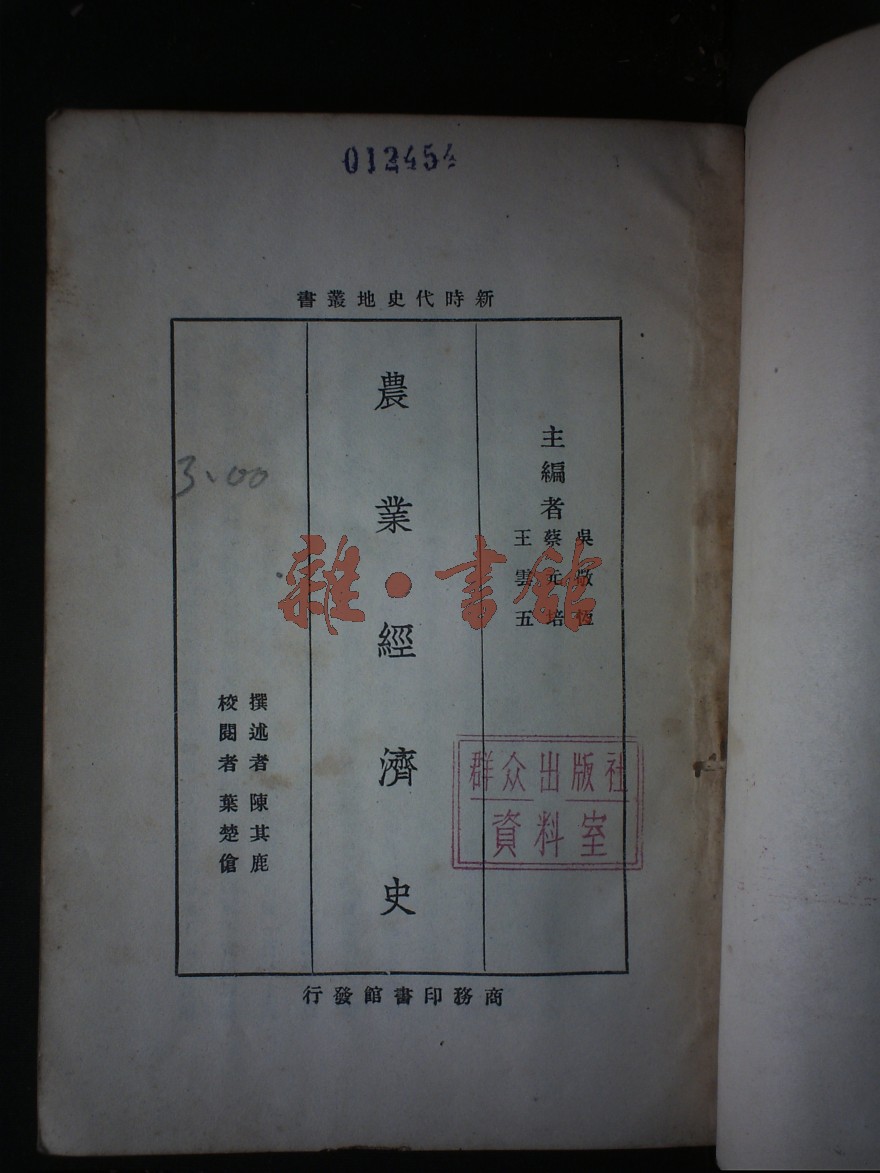 012454
新時代史地叢書
主編者
吳敬恆
蔡元培
王雲五
農業經濟史
撰述者 陳其鹿
校閱者 葉楚傖
商務印書館發行
3.00
雜·書館
群众出版社
資料室